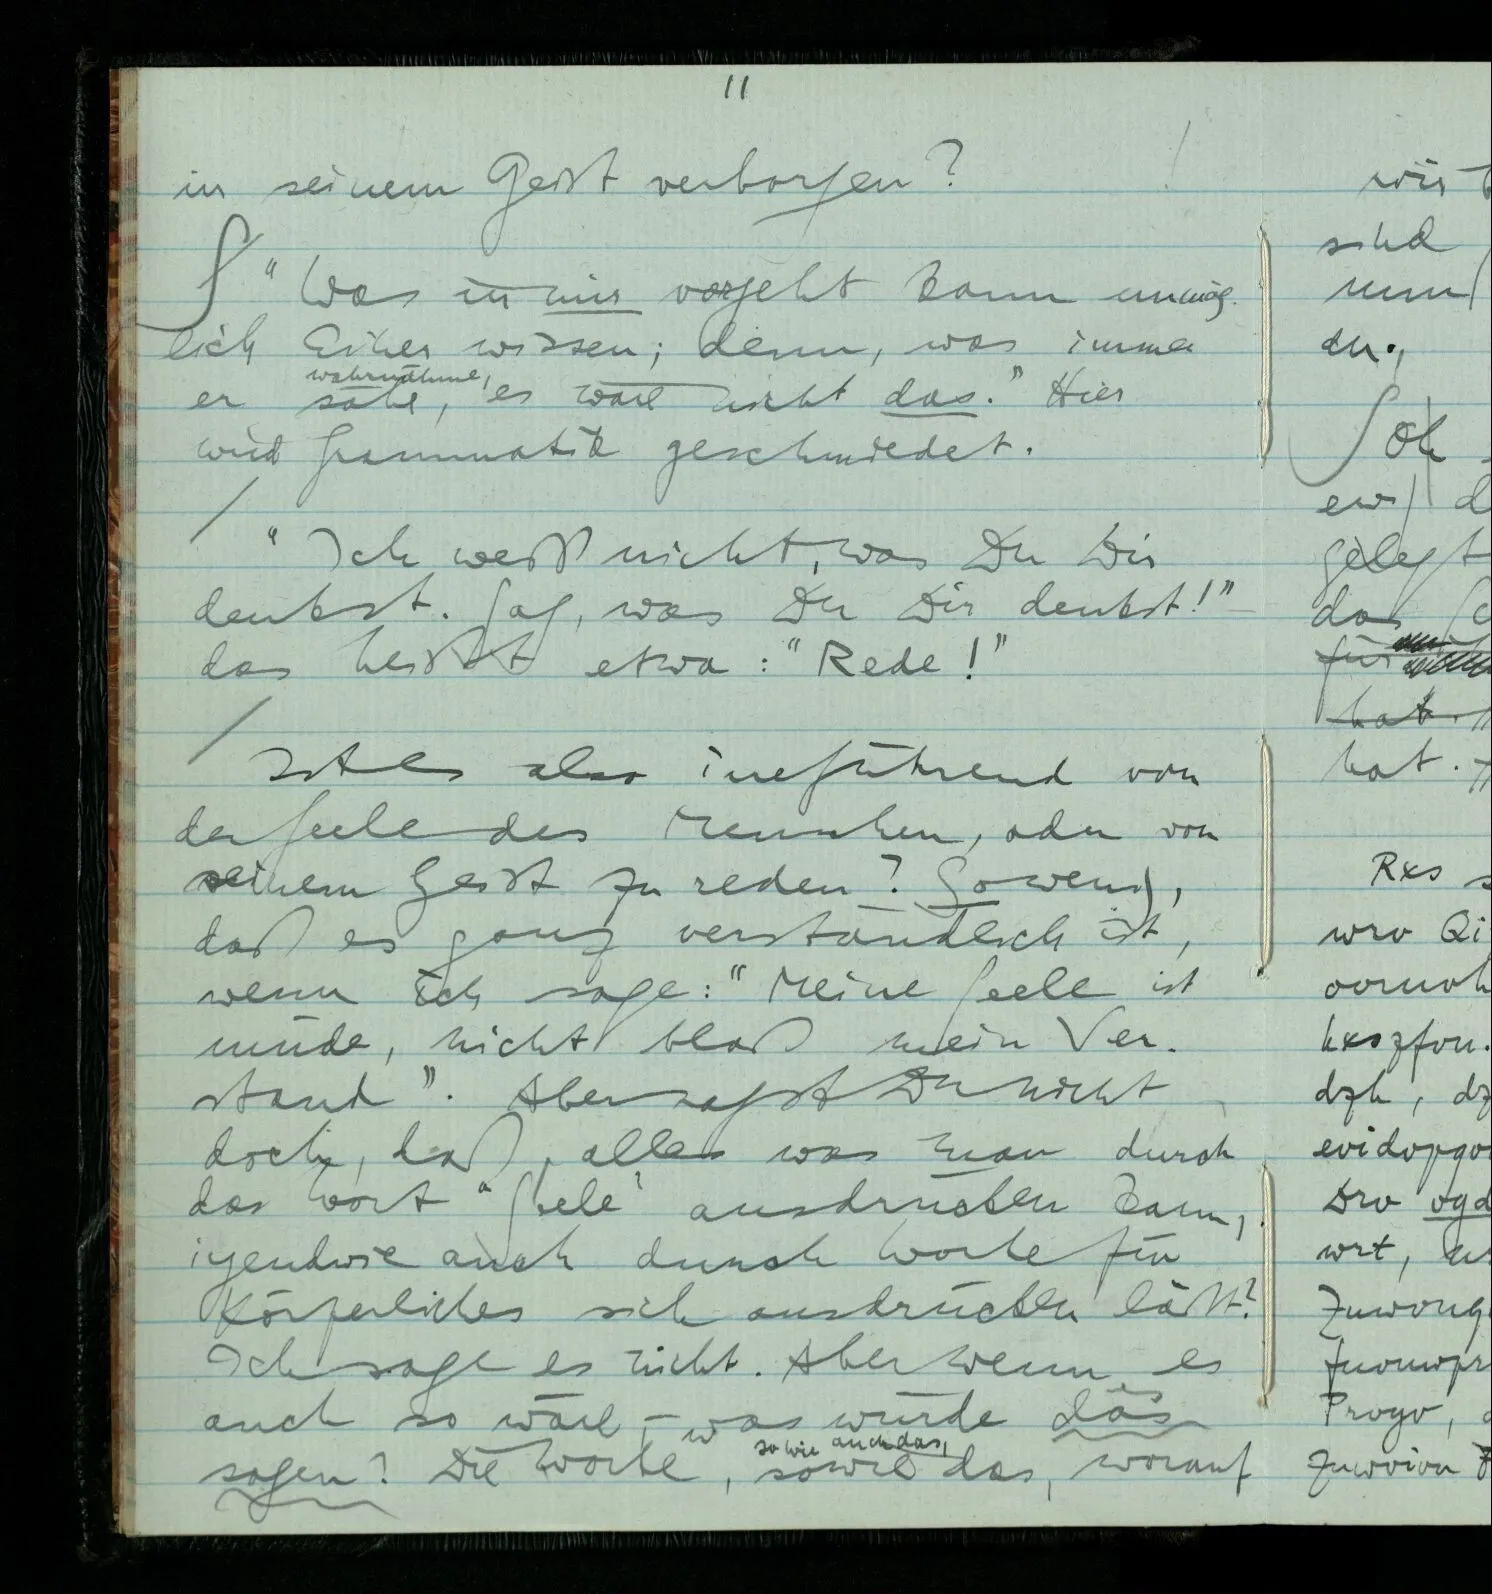 11
in seinem Geist verborgen?
S "Was in mir vorgeht kann unmög-
lich Einer wissen; denn, was immer
wahrnähme,
er sähe, es wäre nicht das." Hier
wird Grammatik geschmiedet.
/
"Ich weiß nicht, was Du Dir
denkst. Sag, was Du Dir denkst!" –
das heißt etwa: "Rede!"
/
Ist es also irreführend von
der Seele des Menschen, oder von
seinem Geist zu reden? Sowenig,
daß es ganz verständlich ist,
wenn ich sage: "Meine Seele ist
müde, nicht bloß mein Ver-
stand". Aber sagst Du nicht
doch, daß, alles was man durch
das Wort "Seele" ausdrücken kann,
irgendwie auch durch Worte für
Körperliches sich ausdrücken läßt?
Ich sage es nicht. Aber wenn es
auch so wäre, – was würde das
sagen? Die Worte, sowie das, worauf
so wie auch das,
wir
sind
nun
an.
S Ok
ew
gelegt
das
für
hat.
hat.
Rxs
wrv Qi
oornoh
hxszfou.
dzh, dz
evidopgo
Drv ogd
wrt,
Zuwoug
Progo,